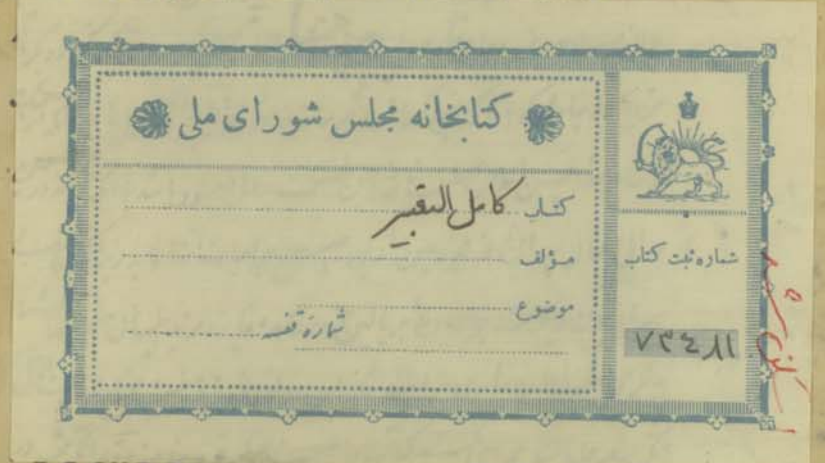 کتابخانه مجلس شورای ملی
کتاب کامل التعبیر
مؤلف
موضوع
شمارۀ قفسه
شماره ثبت کتاب
۷۳۴۸۱